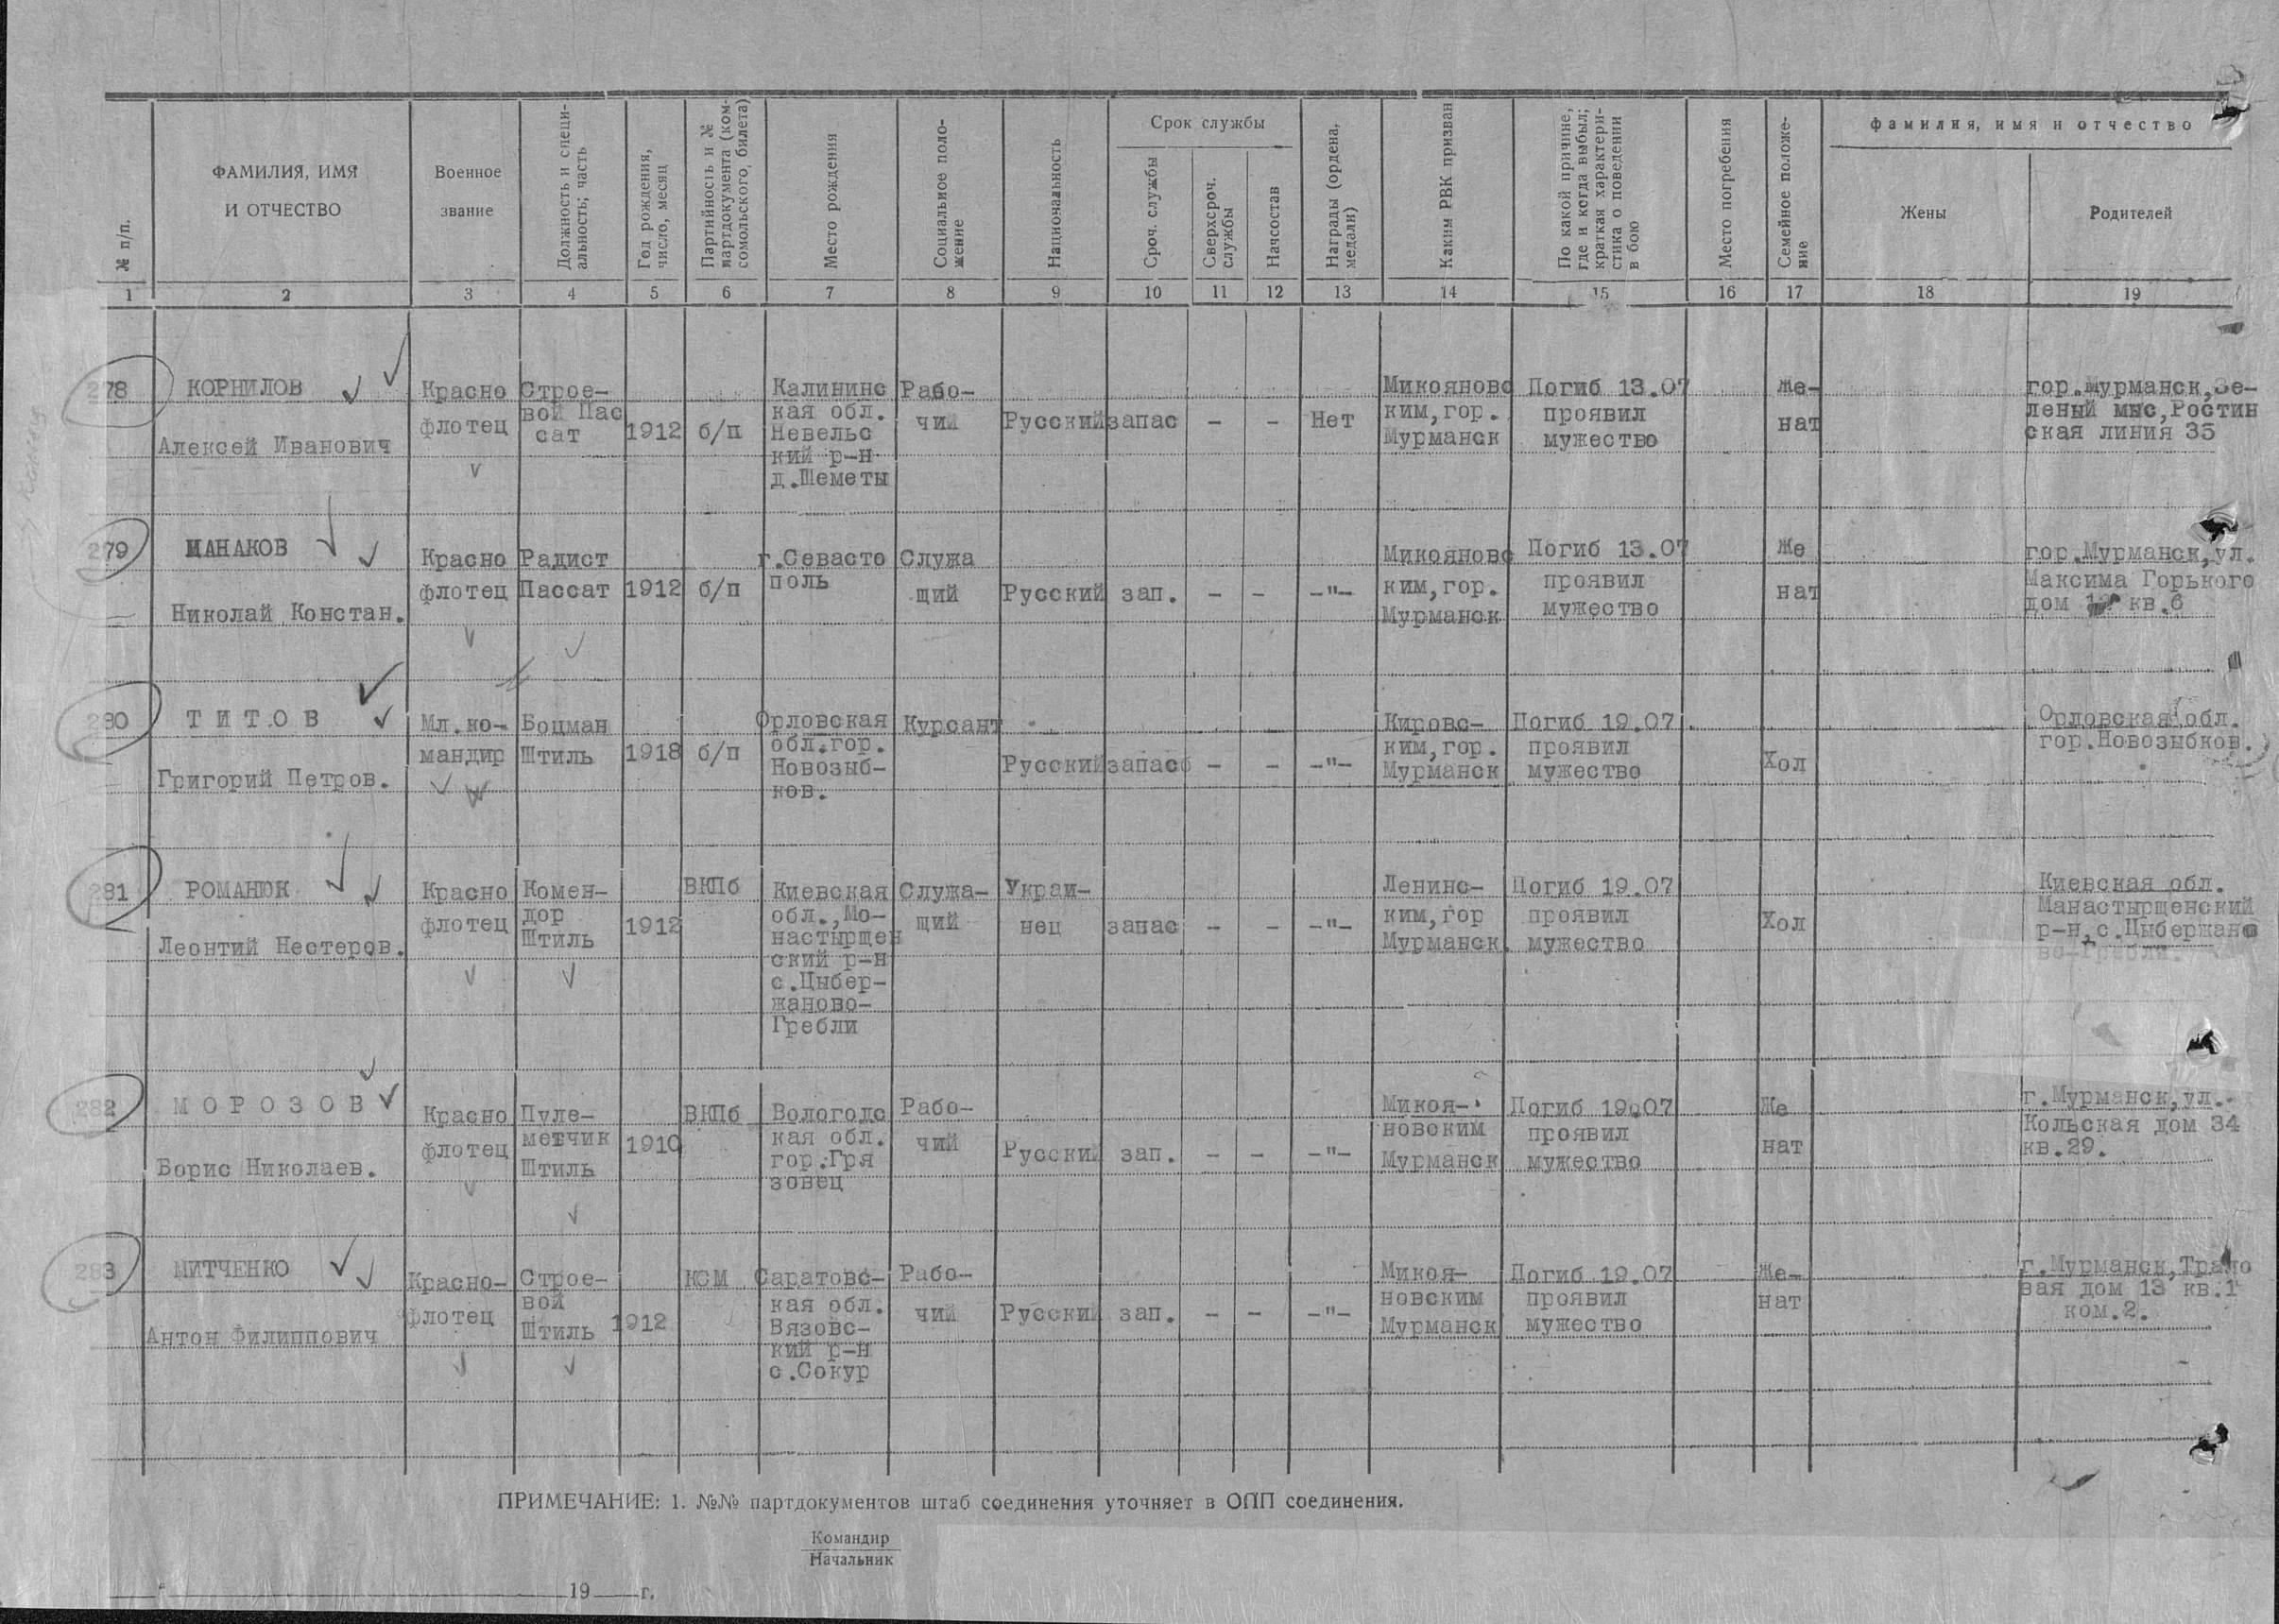 № п/п.
ФАМИЛИЯ, ИМЯ
И ОТЧЕСТВО
Военное
звание
Должность и специ-
альность; часть
Год рождения,
число, месяц
Партийность и №
партдокумента (ком-
сомольского, билета)
Место рождения
Социальное поло-
жение
Национальность
Срок службы
Сроч. службы
Сверхсроч.
службы
Начсостав
Награды (ордена,
медали)
Каким РВК призван
По какой причине,
где и когда выбыл;
краткая характери-
стика о поведении
в бою
Место погребения
Семейное положе-
ние
фамилия, имя и отчество
Жены
Родителей
1 2 3 4 5 6 7 8 9 10 11 12 13 14 15 16 17 18 19
278
КОРНИЛОВ
Алексей Иванович
Красно
флотец
Строе-
вой Пас
сат
1912
б/п
Калининс
кая обл.
Невельс
кий р-н
д.Шеметы
Рабо-
чий
Русский
запас
-
-
Нет
Микояновс
ким,гор.
Мурманск
Погиб 13.07
проявил
мужество
же-
нат
гор.Мурманск,Зе-
леный мыс,Ростин
ская линия 35
279
МАНАКОВ
Николай Констан.
Красно
флотец
Радист
Пассат
1912
б/п
г.Севасто
поль
Служа
щий
Русский
зап.
-
-
-"-
Микояновс
ким,гор.
Мурманск
Погиб 13.07
проявил
мужество
Же
нат
гор.Мурманск,ул.
Максима Горького
дом кв.6
280
ТИТОВ
Григорий Петров.
Мл.ко-
мандир
Боцман
Штиль
1918
б/п
Орловская
обл.гор.
Новозыб-
ков.
Курсант
Русский
запасб
-
-
-"-
Кировс-
ким,гор.
Мурманск
Погиб 19.07.
проявил
мужество
Хол
Орловская обл.
гор.Новозыбков.
281
РОМАНЮК
Леонтий Нестеров.
Красно
флотец
Комен-
дор
Штиль
1912
ВКПб
Киевская
обл.,Мо-
настырщен
ский р-н
с.Цыбер-
жаново-
Гребли
Служа-
щий
Украи-
нец
запас
-
-
-"-
Ленинс-
ким,гор
Мурманск.
Погиб 19.07
проявил
мужество
Хол
Киевская обл.
Манастырщенский
р-н,с.Цыбержано
во-Гребли.
282
МОРОЗОВ
Борис Николаев.
Красно
флотец
Пуле-
метчик
Штиль
1910
ВКПб
Вологодс
кая обл.
гор.Гря
зовец
Рабо-
чий
Русский
зап.
-
-
-"-
Микоя-
новским
Мурманск
Погиб 19.07
проявил
мужество
Же
нат
г.Мурманск,ул.
Кольская дом 34
кв.29.
283
МИТЧЕНКО
Антон Филиппович
Красно-
флотец
Строе-
вой
Штиль
1912
КСМ
Саратовс-
кая обл.
Вязовс-
кий р-н
с.Сокур
Рабо-
чий
Русский
зап.
-
-
-"-
Микоя-
новским
Мурманск
Погиб 19.07
проявил
мужество
Же-
нат
г.Мурманск,Трало
вая дом 13 кв.1
ком.2.
ПРИМЕЧАНИЕ: 1. №№ партдокументов штаб соединения уточняет в ОПП соединения.
Командир
Начальник
19 г.